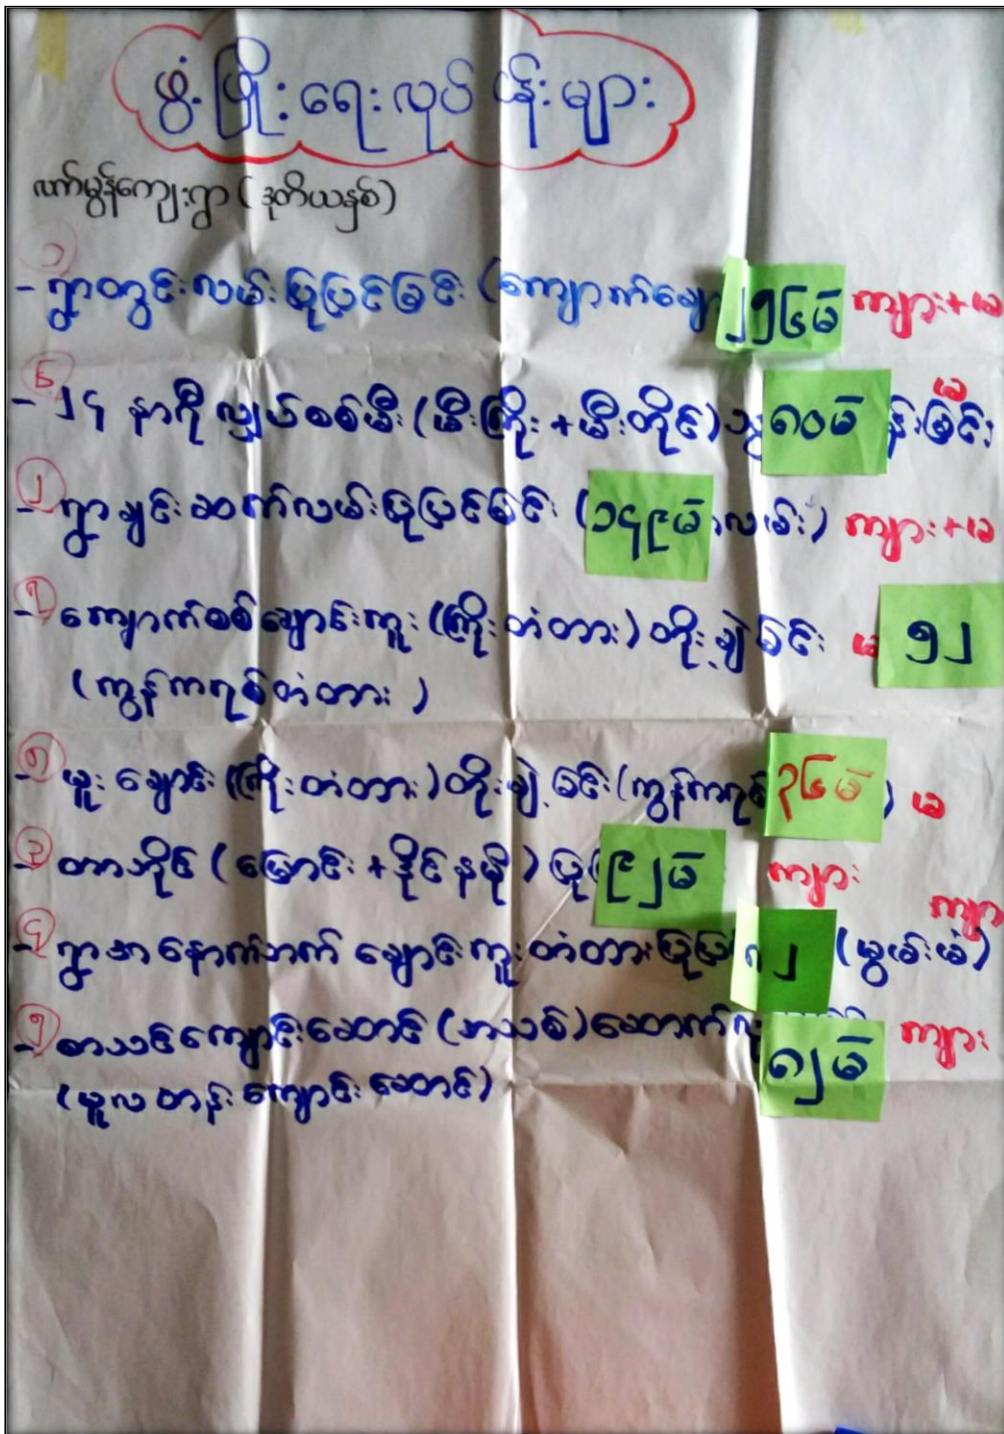 ဖွံ့ဖြိုးရေးလုပ်ငန်းများ
ကျေးရွာ (ဒုတိယနှစ်)
၁ - ရွာတွင်းလမ်းပြုပြင်ခြင်း (ကျောက်ချော ၂၅၆မဲ ကျား+မ
၆ - ၂၄ နာရီ လျှပ်စစ်မီး (မီးကြိုး+မီးတိုင်) သွ ၈၀မဲ န်းခြင်း မ
၂ - ရွာချင်းဆက်လမ်းပြုပြင်ခြင်း (၁၄၉မဲ လမ်း) ကျား+မ
- ကျောက်စစ်ချောင်းကူး (ကြိုးတံတား) တိုးချဲ့ခြင်း မ ၅၂
(ကွန်ကရစ်တံတား)
- ယူးချောင်း (ကြိုးတံတား) တိုးချဲ့ခြင်း (ကွန်ကရစ် ၃၆မဲ ) မ
၃ - တာဘိုင် (မြောင်း+ဒိုင်နမို) ပြု ၉၂မဲ ကျား
၄ - ရွာအနောက်ဘက် ချောင်းကူးတံတားပြုပြ ၈၂ (မွမ်းမံ) ကျား
၅ - စာသင်ကျောင်းဆောင် (အသစ်) ဆောက်လု ၈၂မဲ ကျား
(မူလတန်းကျောင်းဆောင်)